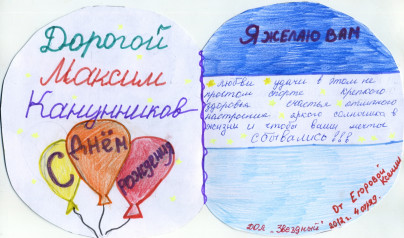 Дорогой
Максим
Канунников
С
Днём
Рождения
Я ЖЕЛАЮ ВАМ
любви удачи в этом не
простом спорте крепкого
здоровья счастья отличного
настроение яркого солнышка в
жизни и чтобы ваши мечты
СБЫВАЛИСЬ
От Егоровой
Ксении
2012г. 4 отряд.
ДОЛ „Звёздный"